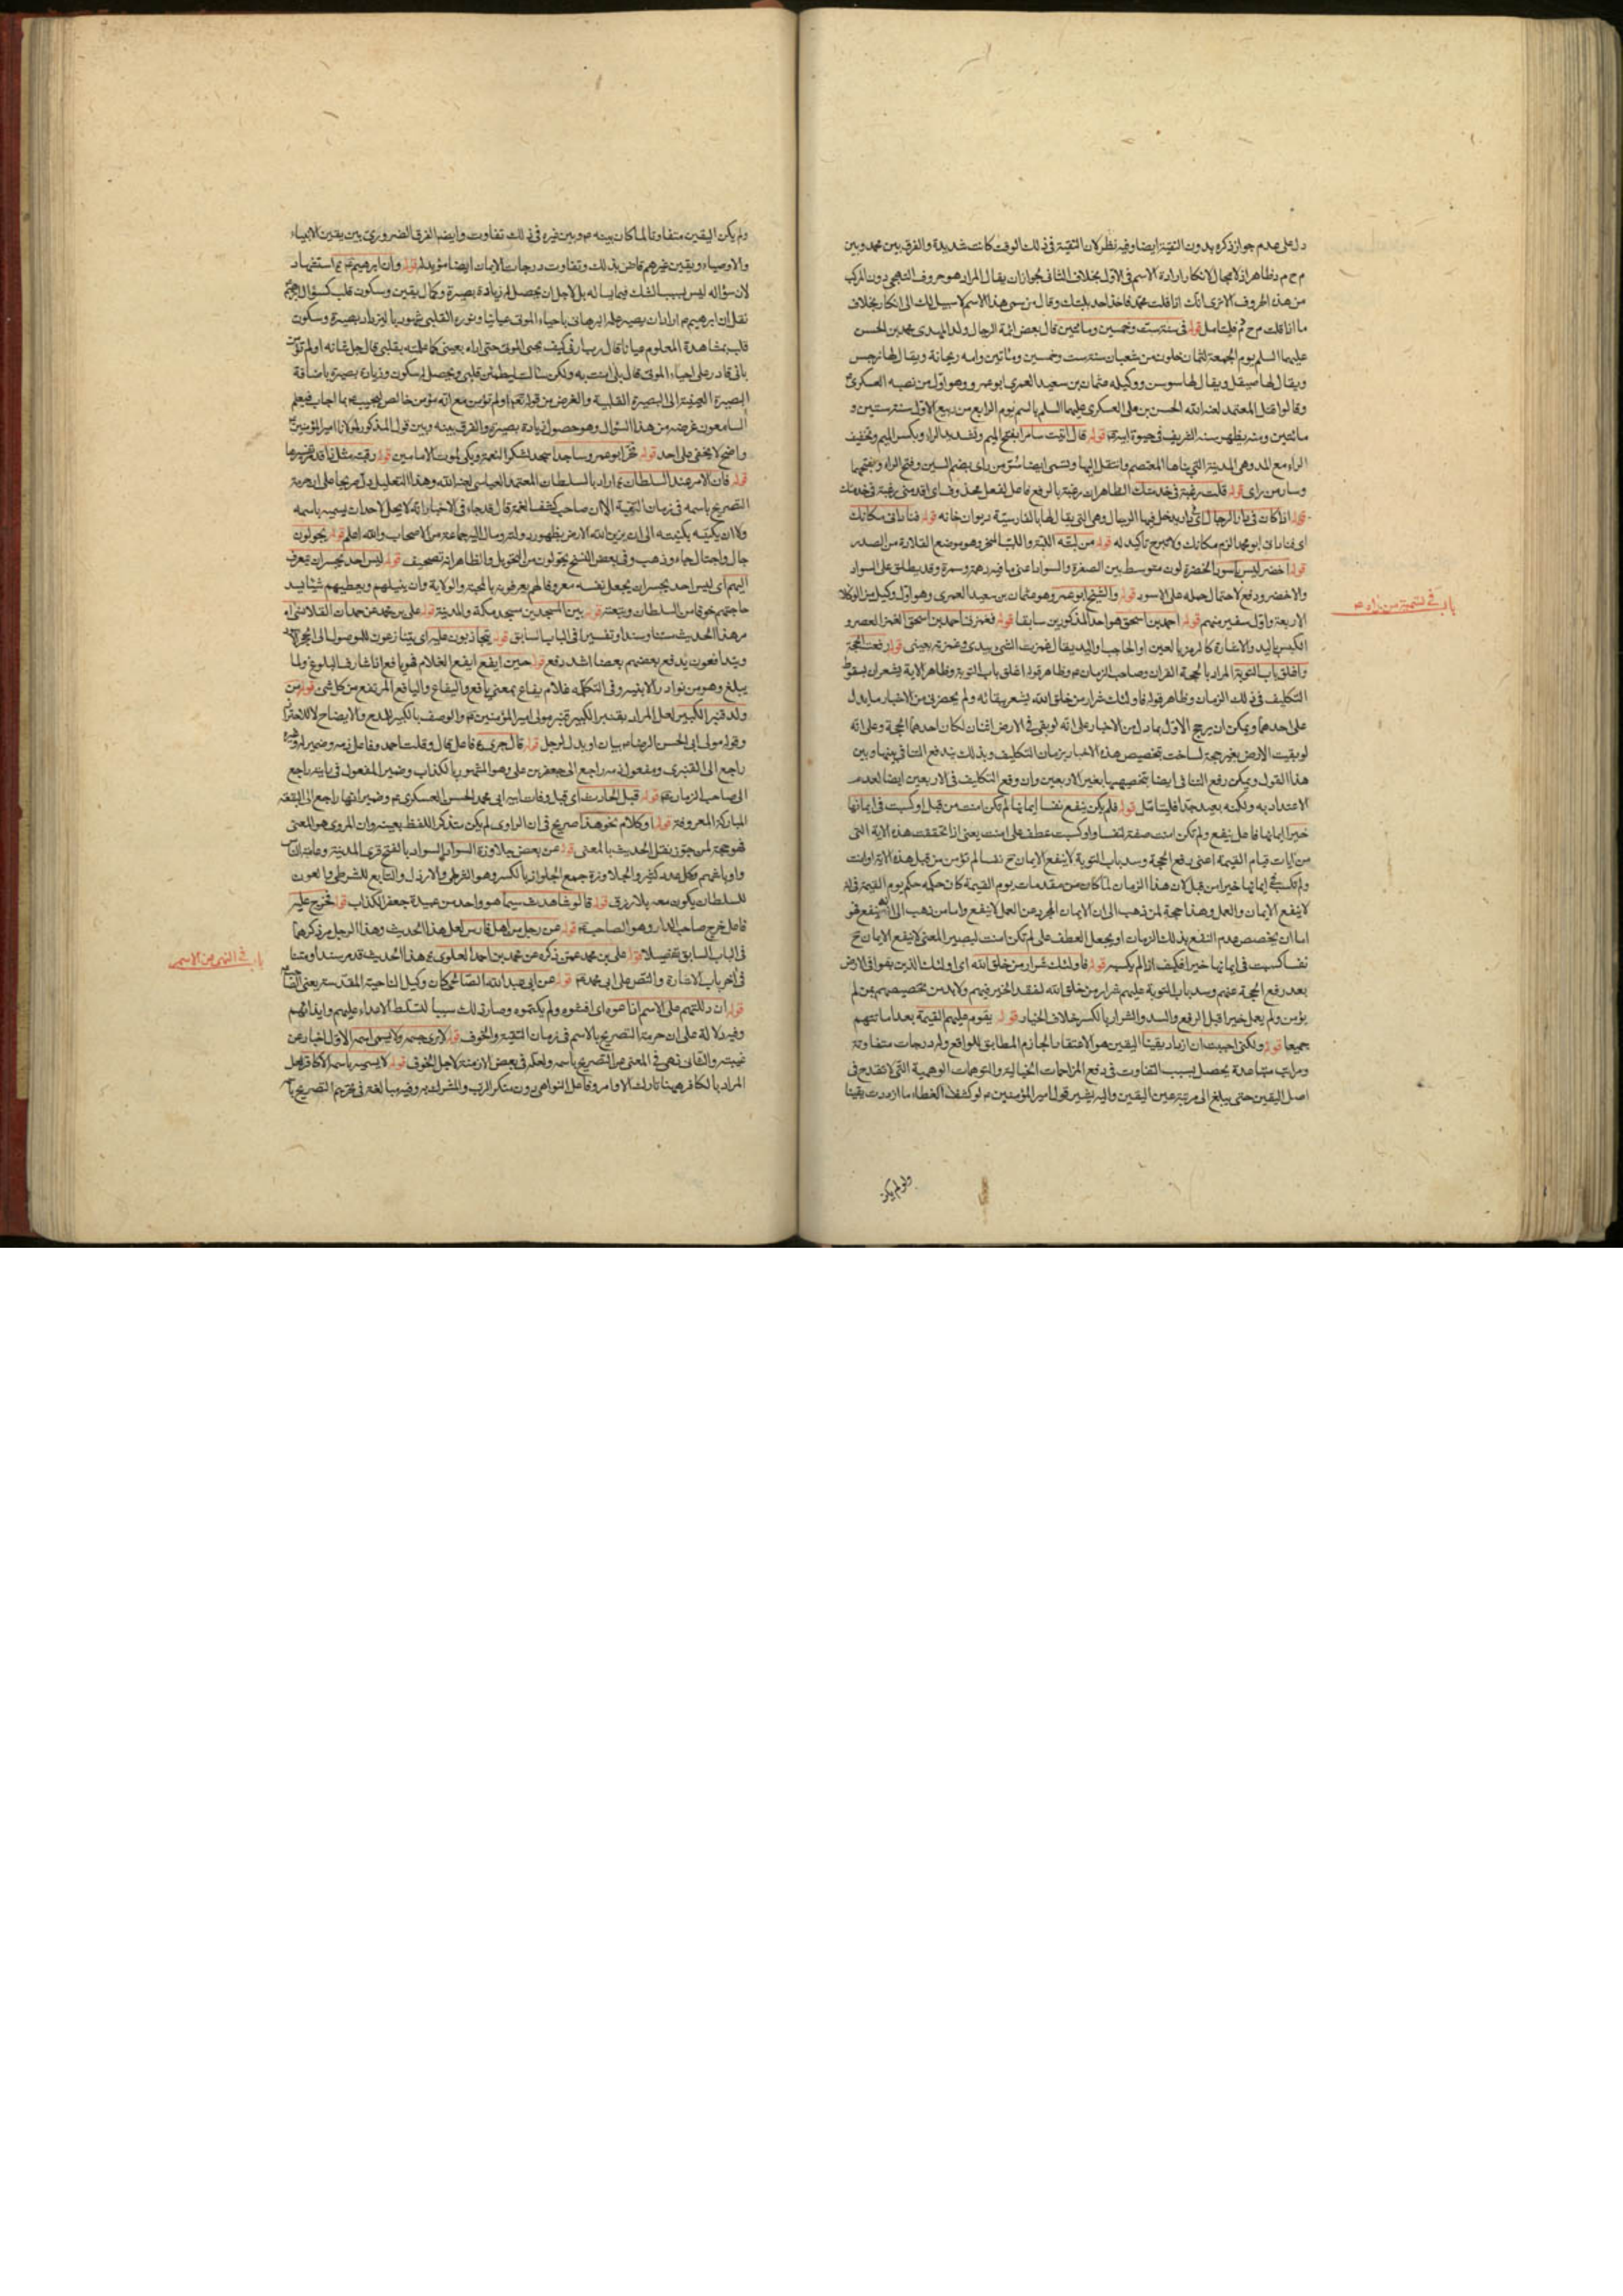 دل على عدم جواز ذكره بدون التقية ايضا وفيه نظر لان التقية في ذلك الوقت كانت شديدة والفرق بين محمد وبين
م ح م د ظاهر اذ لا مجال لانكار ارادة الاسم في الاول بخلاف الثاني لجواز ان يقال المراد هو حروف التهجي دون المركب
من هذه الحروف الا ترى انك اذا قلت محمد فاخذ احد بلبتك وقال من يسمى هذا الاسم لا سبيل لك الى انكاره بخلاف
ما اذا قلت م ح م د فليتامل قوله في سنة ست وخمسين ومائتين قال بعض ائمة الرجال ولد المهدي محمد بن الحسن
عليهما السلم يوم الجمعة لثمان خلون من شعبان سنة ست وخمسين ومائتين وامه ريحانة ويقال لها نرجس
ويقال لها صيقل ويقال لها سوسن ووكيله عثمان بن سعيد العمري ابو عمرو وهو اول من نصبه العسكري
وقالوا قتل المعتمد لعنه الله الحسن بن علي العسكري عليهما السلم بالسم يوم الرابع من ربيع الاول سنة ستين و
مائتين ومنه يظهر سنه الشريف في حيوة ابيه قوله قال اتيت سامرا بفتح الميم وتشديد الراء وبكسر الميم وتخفيف
الراء مع المد وهي المدينة التي بناها المعتصم وانتقل اليها وتسمى ايضا سر من راى بضم السين وفتح الراء وبفتحهما
وسار من راى قوله قلت رغبة في خدمتك الظاهر ان رغبة بالرفع فاعل لفعل محذوف اى اقدمني رغبة في خدمتك
قوله اذا كان في دار الرجال اى دار يدخل فيها الرجال وهي التي يقال لها بالفارسية ديوان خانه قوله فناداني مكانك
اى فناداني ابو محمد الزم مكانك ولا تبرح تأكيد له قوله من لبته اللبة واللبب المنحر وهو موضع القلادة من الصدر
قوله اخضر ليس باسود الخضرة لون متوسط بين الصفرة والسواد اعنى ما فيه دهمة وسمرة وقد يطلق على السواد
والاخضر ودفع لاحتمال حمله على الاسود قوله والشيخ ابو عمرو وهو عثمان بن سعيد العمري وهو اول وكيل من الوكلاء
الاربعة واول سفير منهم قوله احمد بن اسحق هو احد المذكورين سابقا قوله فغمزني احمد بن اسحق الغمز العصر و
الكبس باليد والاشارة كالرمز بالعين او الحاجب واليد يقال غمزت الشئ بيدى وغمزته بعيني قوله رفعت الحجة
واغلق باب التوبة المراد بالحجة القران وصاحب الزمان وظاهر قوله اغلق باب التوبة وظاهر الاية يشعران بسقوط
التكليف في ذلك الزمان وظاهر قوله فاولئك شرار من خلق الله يشعر ببقائه ولم يحضرني من الاخبار ما يدل
على احدهما ويمكن ان يرجح الاول بما دل من الاخبار على انه لو بقي في الارض اثنان لكان احدهما الحجة وعلى انه
لو بقيت الارض بغير حجة لساخت بتخصيص هذه الاخبار بزمان التكليف وبذلك يندفع التنافي بينها وبين
هذا القول ويمكن رفع التنافي ايضا بتخصيصها بغير الاربعين وان وقع التكليف في الاربعين ايضا لعدم
الاعتداد به ولكنه بعيد جدا فليتامل قوله فلم يكن ينفع نفسا ايمانها لم تكن امنت من قبل او كسبت في ايمانها
خيرا ايمانها فاعل ينفع ولم تكن امنت صفة لنفسا واو كسبت عطف على امنت يعنى اذا تحققت هذه الاية التي
من ايات قيام القيمة اعنى رفع الحجة وسد باب التوبة لا ينفع الايمان ح نفسا لم تؤمن من قبل هذه الاية او امنت
ولم تكسب في ايمانها خيرا من قبل لان هذا الزمان لما كان من مقدمات يوم القيمة كان حكمه حكم يوم القيمة في انه
لا ينفع الايمان والعمل وهذا حجة لمن ذهب الى ان الايمان المجرد عن العمل لا ينفع واما من ذهب الى انه ينفع فهو
اما ان يخصص عدم النفع بذلك الزمان او يجعل العطف على لم تكن امنت ليصير المعنى لا ينفع الايمان ح
نفسا كسبت في ايمانها خيرا فكيف اذا لم يكسبه قوله فاولئك شرار من خلق الله اى اولئك الذين بقوا في الارض
بعد رفع الحجة عنهم وسد باب التوبة عليهم شرار من خلق الله لفقد الخير فيهم ولا بد من تخصيصهم بمن لم
يؤمن ولم يعمل خيرا قبل الرفع والسد والشرار بالكسر خلاف الخيار قوله يقوم عليهم القيمة بعد اماتتهم
جميعا قوله ولكني احببت ان ازداد يقينا اليقين هو الاعتقاد الجازم المطابق للواقع وله درجات متفاوتة
ومراتب متباعدة يحصل بسبب التفاوت في دفع المزاحمات الخيالية والتوهمات الوهمية التي لا تقدح في
اصل اليقين حتى يبلغ الى مرتبة عين اليقين واليه يشير قول امير المؤمنين لو كشف الغطاء ما ازددت يقينا
باب في تسمية من راه
ولو لم يكن
ولم يكن اليقين متفاوتا لما كان بينه وبين غيره في ذلك تفاوت وايضا الفرق الضروري بين يقين الانبياء
والاوصياء ويقين غيرهم قاض بذلك وتفاوت درجات الايمان ايضا مؤيد له قوله وان ابرهيم استشهاد
لان سؤاله ليس بسبب الشك فيما يسأله بل لاجل ان يحصل له زيادة بصيرة وكمال يقين وسكون قلب كسؤال ابرهيم
نقل ان ابرهيم اراد ان يصير علمه البرهاني باحياء الموتى عيانيا ونوره القلبي شهوديا ليزداد بصيرة وسكون
قلب بمشاهدة المعلوم عيانا قال رب ارني كيف تحيى الموتى حتى اراه بعيني كما علمته بقلبي قال جل شانه اولم تؤمن
باني قادر على احياء الموتى قال بلى امنت به ولكن سالت ليطمئن قلبي ويحصل له سكون وزيادة بصيرة باضافة
البصيرة العينية الى البصيرة القلبية والغرض من قوله تعالى اولم تؤمن مع انه مؤمن خالص ليجيب بما اجاب فيعلم
السامعون غرضه من هذا السؤال وهو حصول زيادة بصيرة والفرق بينه وبين قول المذكور لمولانا امير المؤمنين
واضح لا يخفى على احد قوله فخر ابو عمرو ساجدا سجد لشكر النعمة وبكى لموت الامامين قوله رقبته مثل ذا قد مر تفسيرها
قوله فان الامر عند السلطان اراد بالسلطان المعتمد العباسي لعنه الله وهذا التعليل دل صريحا على ان حرمة
التصريح باسمه في زمان التقية الا ان صاحب كشف الغمة قال قد جاء في الاخبار انه لا يحل لاحد ان يسميه باسمه
ولا ان يكنيه بكنيته الى ان يزين الله الارض بظهور دولته ومال اليه جماعة من الاصحاب والله اعلم قوله يجولون
جال واجتال جاء وذهب وفي بعض النسخ يحولون من التحويل والظاهر انه تصحيف قوله ليس احد يجسر ان يتعرف
اليهم اى ليس احد يجسر ان يجعل نفسه معروفا لهم يعرفونه بالمحبة والولاية وان ينيلهم ويعطيهم شيئا يسد
حاجتهم خوفا من السلطان وتبعته قوله بين المسجدين مسجد مكة والمدينة قوله علي بن محمد عن حمدان القلانسي اه
مر هذا الحديث متنا وسندا وتفسيرا في الباب السابق قوله يتجاذبون عليه اى يتنازعون للوصول الى الحجر
ويتدافعون يدفع بعضهم بعضا اشد دفع قوله حين ايفع ايفع الغلام فهو يافع اذا شارف البلوغ ولما
يبلغ وهو من نوادر الابنية وفي التكملة غلام يفاع بمعنى يافع واليفاع واليافع المرتفع من كل شئ قوله من
ولد قنبر الكبير لعل المراد بقنبر الكبير قنبر مولى امير المؤمنين والوصف بالكبير للمدح والايضاح لا للاحتراز
وقوله مولى ابي الحسن الرضا بيان او بدل لرجل قوله قال جرى فاعل قال وقلت احمد وفاعل ذمه وضمير له
راجع الى القنبري ومفعول ذمه راجع الى جعفر بن علي وهو المشهور بالكذاب وضمير المفعول في رايته راجع
الى صاحب الزمان قوله قبل الحادث اى قبل وفات ابيه ابي محمد الحسن العسكري وضمير انها راجع الى البقعة
المباركة المعروفة قوله او كلام نحو هذا صريح في ان الراوي لم يكن يتذكر اللفظ بعينه وان المروي هو المعنى
فهو حجة لمن جوز نقل الحديث بالمعنى قوله عن بعض جلاوزة السواد السواد بالفتح قرى المدينة وعامة الناس
واوباشهم وكل عدد كثير والجلاوزة جمع الجلواز بالكسر وهو الشرطي والارذل والتابع للشرطي والعون
للسلطان يكون معه بلا رزق قوله قال شاهدت سيما هو واحد من عبيد جعفر الكذاب قوله فخرج عليه
فاعل خرج صاحب الدار وهو الصاحب قوله عن رجل من اهل فارس لعل هذا الحديث وهذا الرجل مر ذكرهما
في الباب السابق تفصيلا قوله علي بن محمد عمن ذكره عن محمد بن احمد العلوي هذا الحديث قد مر سندا ومتنا
في آخر باب الاشارة والنص على ابي محمد قوله عن ابي عبد الله الصالحي كان وكيل الناحية المقدسة يعنى القائم
قوله ان دللتهم على الاسم اذاعوه اى افشوه ولم يكتموه وصار ذلك سببا لتسلط الاعداء عليهم وايذائهم
وفيه دلالة على ان حرمة التصريح بالاسم في زمان التقية والخوف قوله لا يرى جسمه ولا يسمى اسمه الاول اخبار عن
غيبته والثاني نهي في المعنى عن التصريح باسمه ولعله في بعض الازمنة لاجل الخوف قوله لا يسميه باسمه الا كافر لعل
المراد بالكافر هيهنا تارك الاوامر وفاعل النواهي دون منكر الرب والمشرك به وفيه مبالغة في تحريم التصريح باسمه
باب في النهي عن الاسم